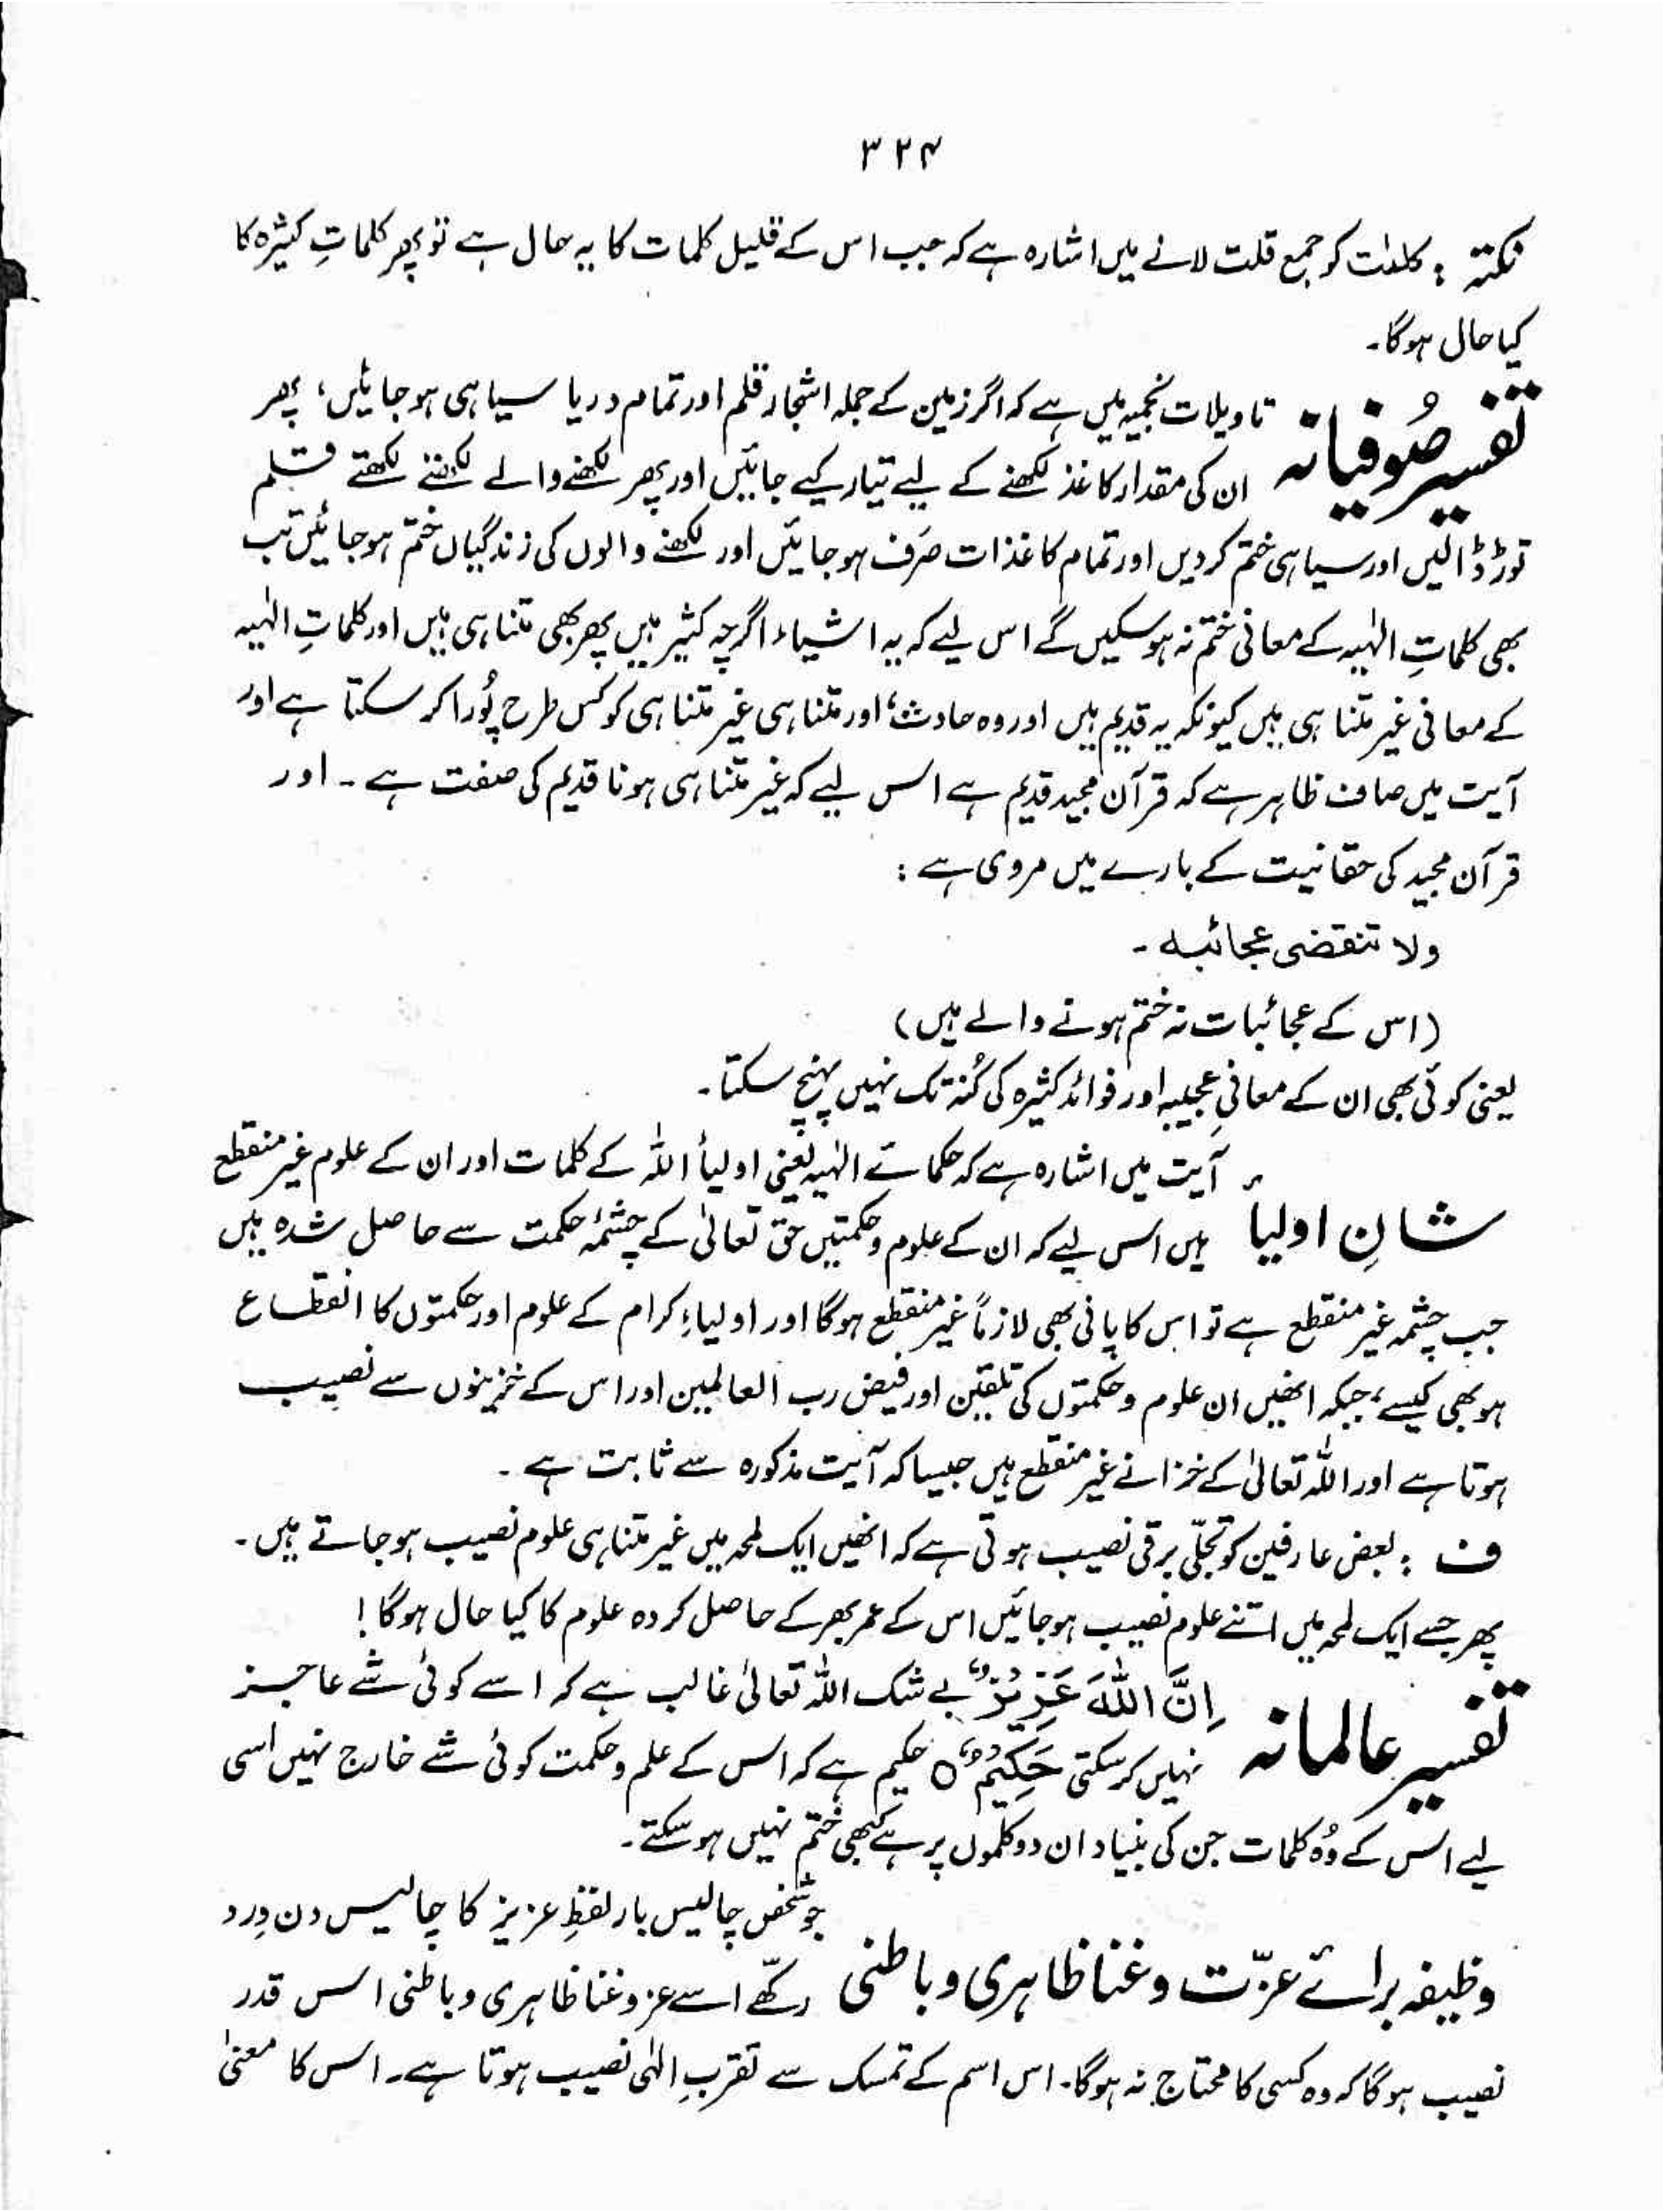 ۳۲۴
نکتہ : کلمٰت کو جمع قلت لانے میں اشارہ ہے کہ جب اس کے قلیل کلمات کا یہ حال ہے تو پھر کلماتِ کثیرہ کا
کیا حال ہوگا۔
تفسیر صُوفیانہ
تاویلات نجمیہ میں ہے کہ اگر زمین کے جملہ اشجار قلم اور تمام دریا سیاہی ہو جائیں، پھر
ان کی مقدار کاغذ لکھنے کے لیے تیار کیے جائیں اور پھر لکھنے والے لکھتے لکھتے قلم
توڑ ڈالیں اور سیاہی ختم کر دیں اور تمام کاغذات صَرف ہو جائیں اور لکھنے والوں کی زندگیاں ختم ہو جائیں تب
بھی کلماتِ الٰہیہ کے معانی ختم نہ ہو سکیں گے اس لیے کہ یہ اشیاء اگرچہ کثیر ہیں پھر بھی متناہی ہیں اور کلماتِ الٰہیہ
کے معانی غیر متناہی ہیں کیونکہ یہ قدیم ہیں اور وہ حادث، اور متناہی غیر متناہی کو کس طرح پُورا کر سکتا ہے اور
آیت میں صاف ظاہر ہے کہ قرآن مجید قدیم ہے اس لیے کہ غیر متناہی ہونا قدیم کی صفت ہے ۔ اور
قرآن مجید کی حقانیت کے بارے میں مروی ہے :
ولا تنقضی عجائبہ ۔
(اس کے عجائبات نہ ختم ہونے والے ہیں)
یعنی کوئی بھی ان کے معانیِ عجیبہ اور فوائد کثیرہ کی کُنہ تک نہیں پہنچ سکتا۔
شانِ اولیا
آیت میں اشارہ ہے کہ حکمائے الٰہیہ یعنی اولیأ اللہ کے کلمات اور ان کے علوم غیر منقطع
ہیں اس لیے کہ ان کے علوم و حکمتیں حق تعالیٰ کے چشمۂ حکمت سے حاصل شدہ ہیں
جب چشمہ غیر منقطع ہے تو اس کا پانی بھی لازماً غیر منقطع ہوگا اور اولیاءِ کرام کے علوم اور حکمتوں کا انقطاع
ہو بھی کیسے، جبکہ انھیں ان علوم و حکمتوں کی تلقین اور فیض رب العالمین اور اس کے خزینوں سے نصیب
ہوتا ہے اور اللہ تعالیٰ کے خزانے غیر منقطع ہیں جیسا کہ آیت مذکورہ سے ثابت ہے ۔
ف : بعض عارفین کو تجلّی برقی نصیب ہوتی ہے کہ انھیں ایک لمحہ میں غیر متناہی علوم نصیب ہو جاتے ہیں ۔
پھر جسے ایک لمحہ میں اتنے علوم نصیب ہو جائیں اس کے عمر بھر کے حاصل کردہ علوم کا کیا حال ہوگا !
تفسیر عالمانہ
اِنَّ اللّٰہَ عَزِیْزٌ بے شک اللہ تعالیٰ غالب ہے کہ اسے کوئی شے عاجز
نہیں کر سکتی حَکِیْمٌ ○ حکیم ہے کہ اس کے علم و حکمت کوئی شے خارج نہیں اسی
لیے اس کے وُہ کلمات جن کی بنیاد ان دو کلموں پر ہے کبھی ختم نہیں ہو سکتے۔
وظیفہ برائے عزّت و غنا ظاہری و باطنی
جو شخص چالیس بار لفظِ عزیز کا چالیس دن وِرد
رکھے اسے عز و غنا ظاہری و باطنی اس قدر
نصیب ہوگا کہ وہ کسی کا محتاج نہ ہوگا۔ اس اسم کے تمسک سے تقربِ الٰہی نصیب ہوتا ہے۔ اس کا معنیٰ